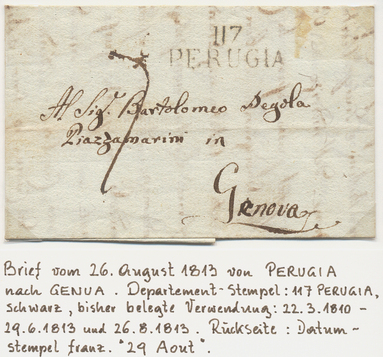 117
PERUGIA
7
Al Sigr. Bartolomeo Degola
Piazzamarini in
Genova
Brief vom 26. August 1813 von PERUGIA
nach GENUA. Departement-Stempel: 117 PERUGIA,
schwarz, bisher belegte Verwendung: 22.3.1810 -
29.6.1813 und 26.8.1813. Rückseite: Datum-
stempel franz. "29 Aout".